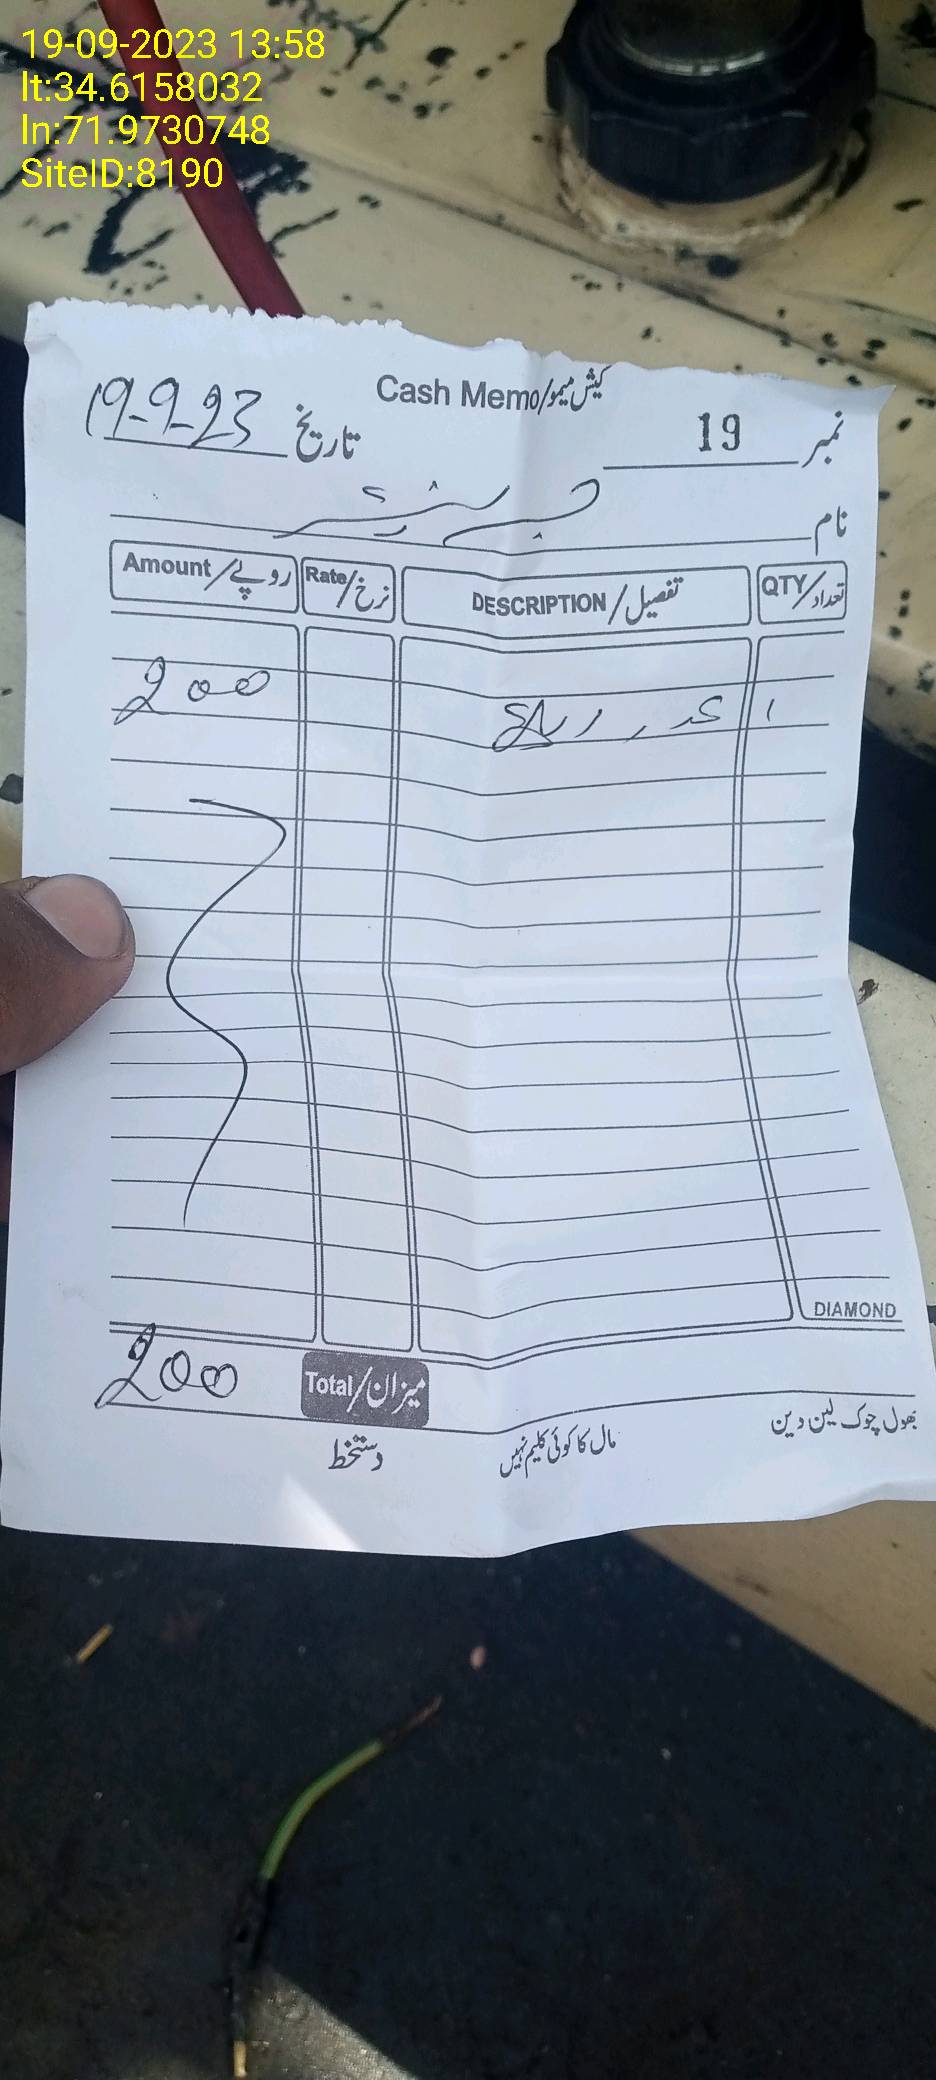 19-09-2023 13:58
lt:34.6158032
ln:71.9730748
SiteID:8190
Cash Memo/کیش میمو
نمبر 19 تاریخ 19-9-23
نام
QTY/تعداد DESCRIPTION/تفصیل Rate/نرخ Amount/روپے
۱ عدد 200
DIAMOND
Total/میزان 200
بھول چوک لین دین مال کا کوئی کلیم نہیں دستخط